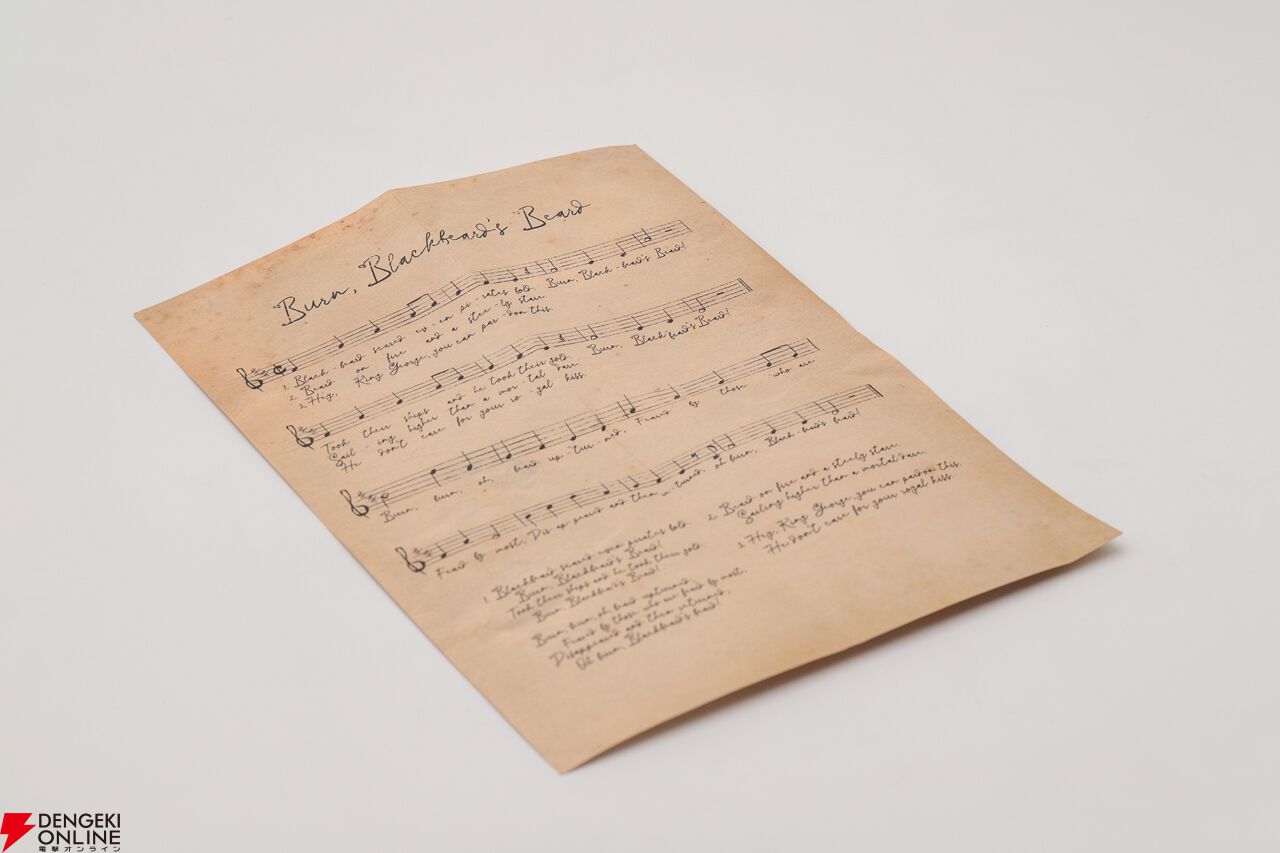 Burn, Blackbeard's Beard
1. Black - beard scared ev - en pi - rates bold. Burn, Black - beard's Beard!
2. Beard on fire and a stee - ly stare.
3. Hey, King George, you can par - don this.
Took their ships and he took their gold. Burn, Blackbeard's Beard!
Sail - ing higher than a mor - tal dare.
He don't care for your ro - yal kiss.
Burn, burn, oh, beard up - tur - ned, Feared by those who are
Feared by most, Dis ap peared and then re turned, oh burn, Black - beard's beard!
1. Blackbeard scared even pirates bold.
Burn, Blackbeard's Beard!
Took their ships and he took their gold.
Burn, Blackbeard's Beard!
Burn, burn, oh beard upturned,
Feared by those who are feared by most.
Disappeared and then returned,
Oh burn, Blackbeard's beard!
2. Beard on fire and a steely stare.
Sailing higher than a mortal dare.
3. Hey, King George, you can pardon this.
He don't care for your royal kiss.
DENGEKI
ONLINE
電撃オンライン